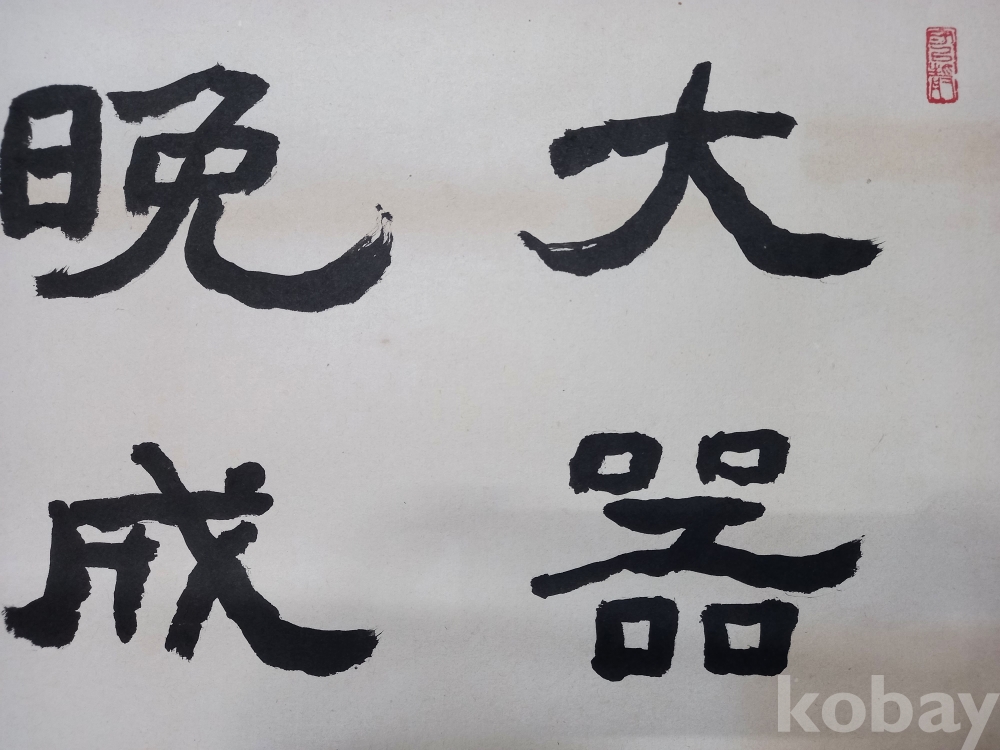 大器
晚成
kobay